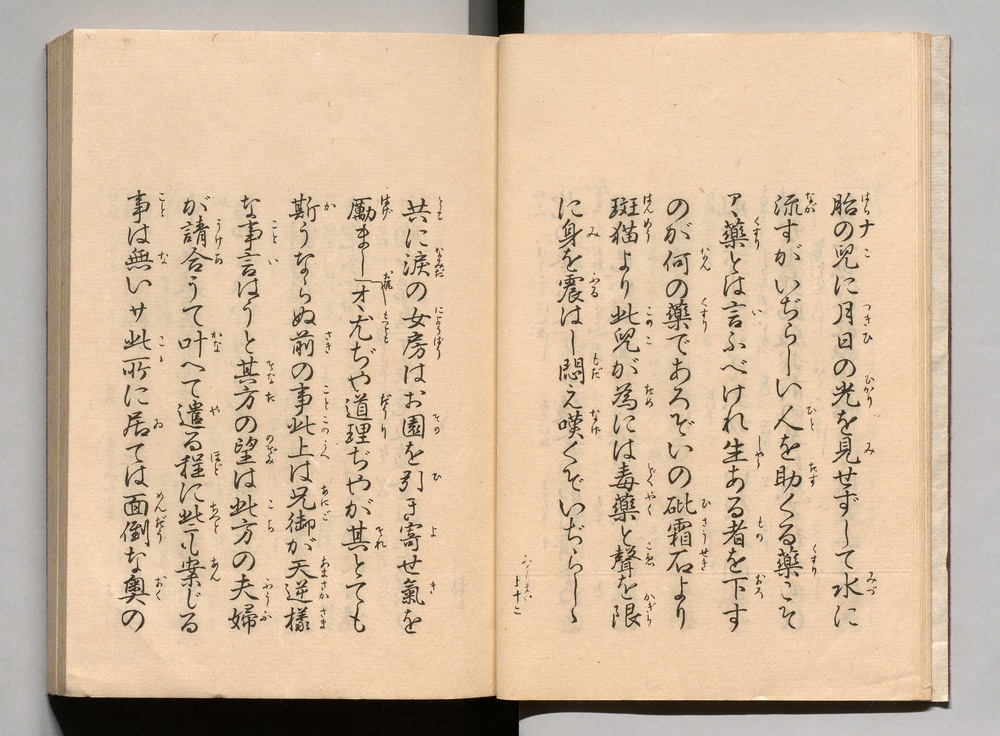 胎の兒に月日の光を見せずして水に
流すがいぢらしい人を助くる藥こそ
藥とは言ふべけれ生ある者を下す
のが何の藥であろぞいの砒霜石より
斑猫より此兒が為には毒藥と聲を限
に身を震はし悶え嘆くぞいぢらしゝ
共に淚の女房はお園を引き寄せ氣を
勵ましオヽ尤ぢや道理ぢやが其とても
斯うならぬ前の事此上は兄御が天逆樣
な事言はうと其方の望は此方の夫婦
が請合うて叶へて遣る程に必案じる
事は無いサ此所に居ては面倒な奧の